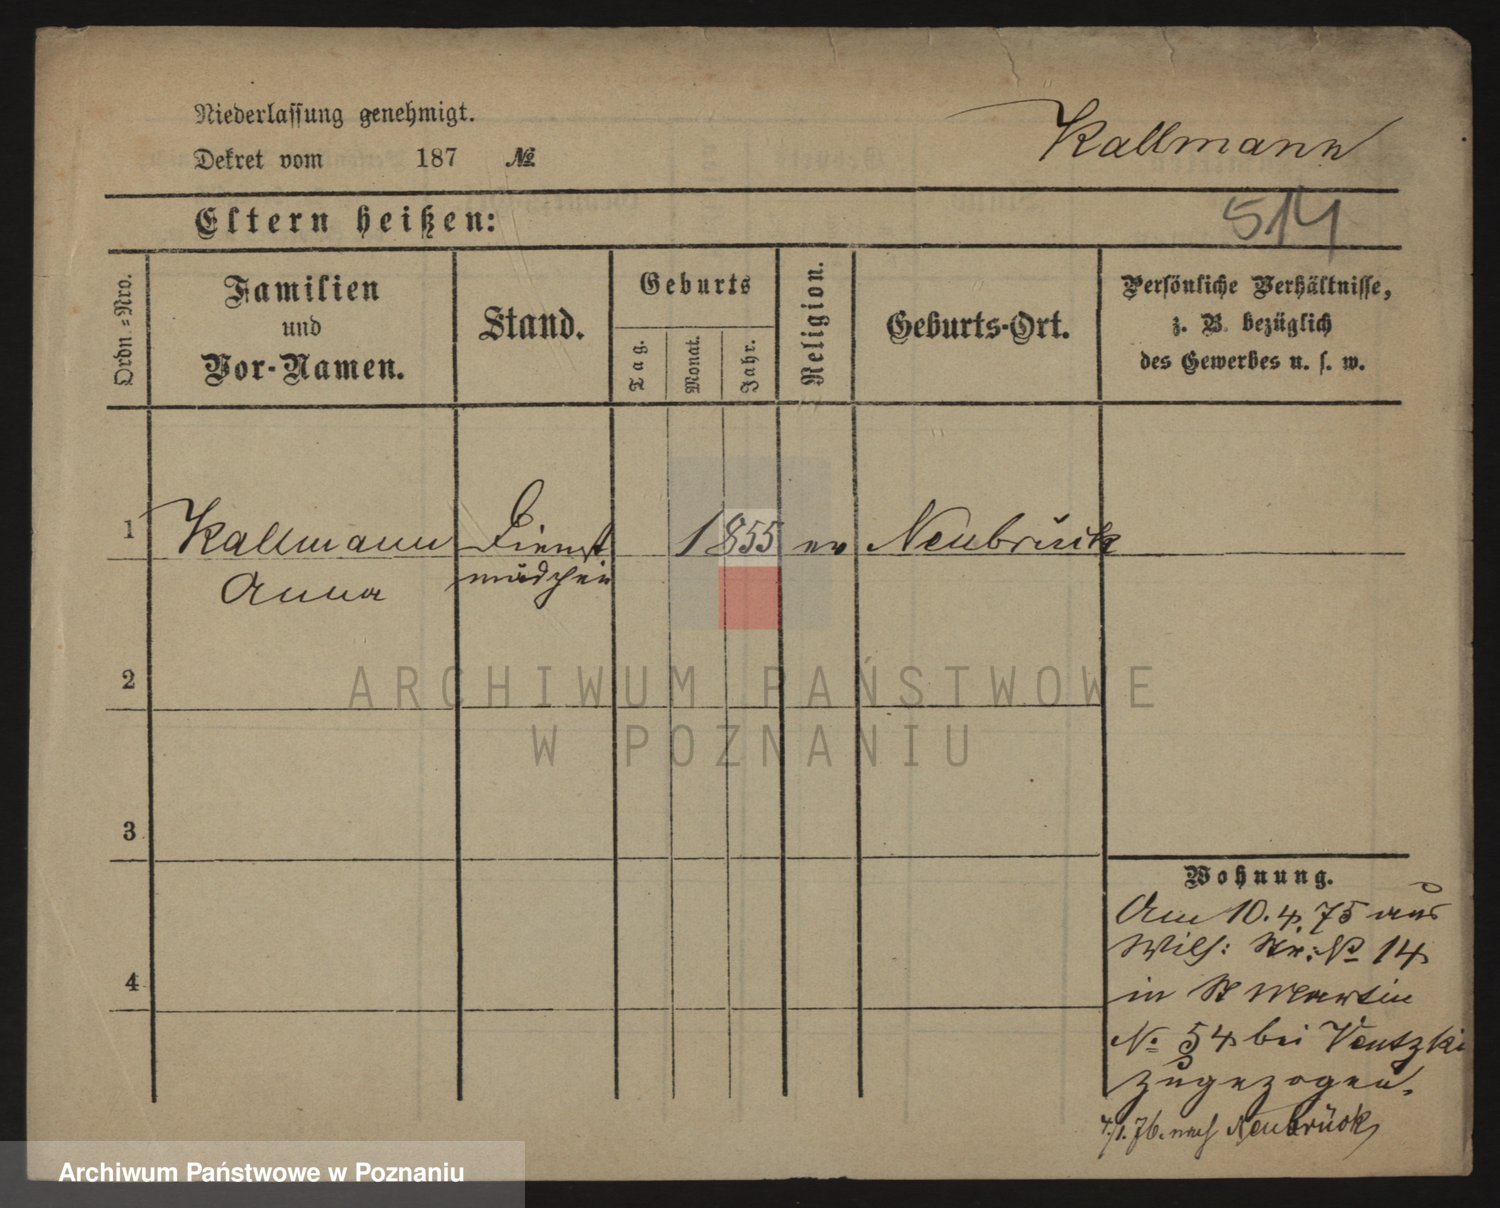 Niederlassung genehmigt.
Dekret vom 187 №
Kallmann
514
Eltern heißen:
Ordn.=Nro.
Familien
und
Vor-Namen.
Stand.
Geburts
Tag.
Monat.
Jahr.
Religion.
Geburts-Ort.
Persönliche Verhältnisse,
z. B. bezüglich
des Gewerbes u. s. w.
1 Kallmann Dienst 1855 ev Neubrück
Anna mädchen
2
ARCHIWUM PAŃSTWOWE
W POZNANIU
3
4
Wohnung.
Am 10.4.75 aus
Wilh: Str: № 14
in St Martin
№ 54 bei Ventzki
zugezogen.
4/1.76. nach Neubrück
Archiwum Państwowe w Poznaniu